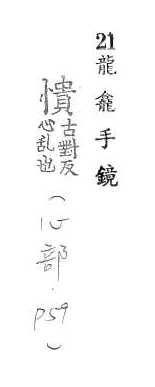 21龍龕手鏡
憒古對反心乱也(心部.p59)